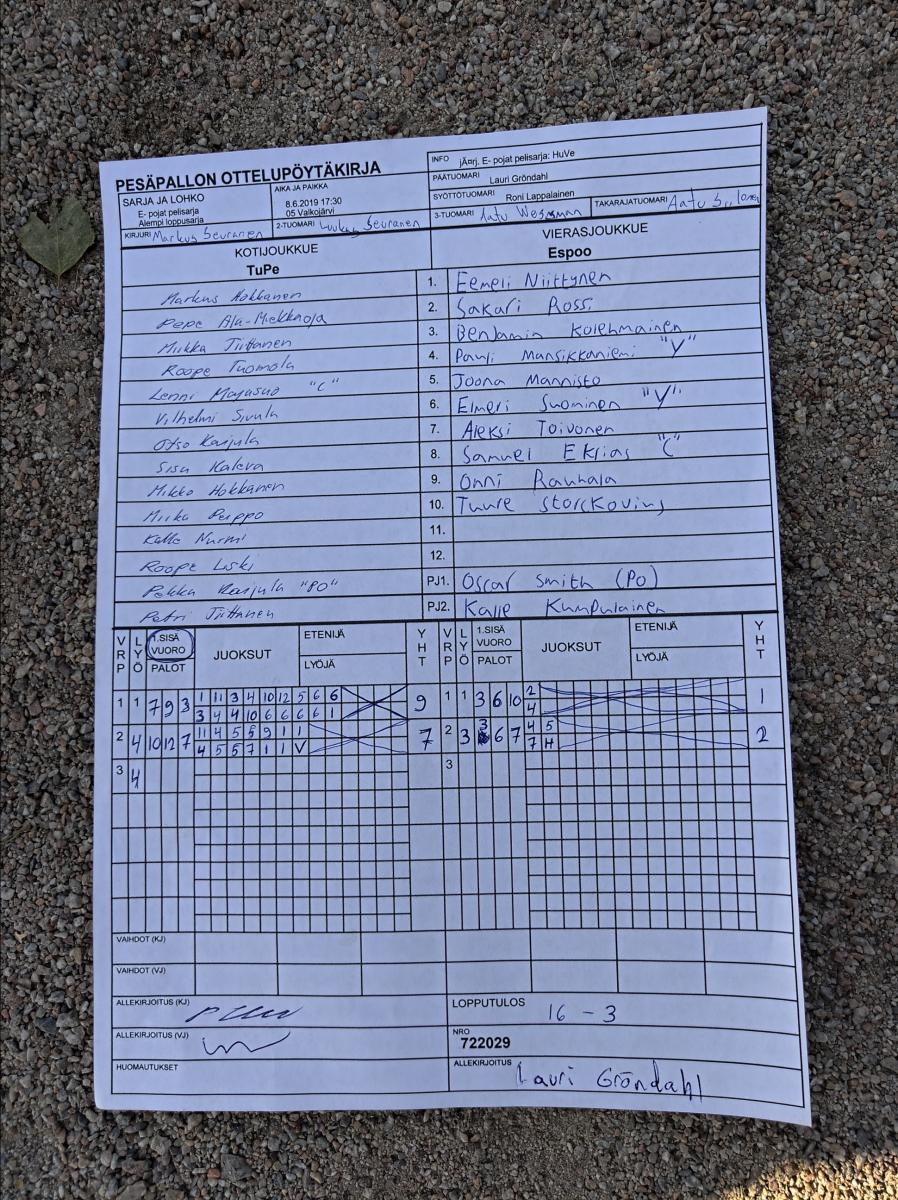 PESÄPALLON OTTELUPÖYTÄKIRJA
SARJA JA LOHKO
E- pojat pelisarja
Alempi loppusarja
AIKA JA PAIKKA
8.6.2019 17:30
05 Valkojärvi
INFO jÃ¤rj. E- pojat pelisarja: HuVe
PÄÄTUOMARI Lauri Gröndahl
SYÖTTÖTUOMARI Roni Lappalainen
KIRJURI Markus Seuranen
2-TUOMARI Seuranen
3-TUOMARI Aatu
TAKARAJATUOMARI Aatu
KOTIJOUKKUE
TuPe
VIERASJOUKKUE
Espoo
Markus Hokkanen 1. Eemeli Niittynen
Pepe Ala-Miekkaoja 2. Sakari Rossi
Miikka Tiittanen 3. Benjamin Kolehmainen
Roope Tuomola 4. Pauli Mansikkaniemi "V"
Lenni Mayasuo "C" 5. Joona Mannisto
Vilhelmi Sivula 6. Elmeri Suominen "V"
Otso Karjula 7. Aleksi Toivonen
Sisu Kaleva 8. Samuel Ekrias "C"
Mikko Hokkanen 9. Onni Rauhala
Miika Perppo 10. Tuure
Kalle Nurmi 11.
Roope Laski 12.
Pekka Karjula "PO" PJ1. Oscar Smith (PO)
Petri Tiittanen PJ2. Kalle Kumpulainen
VRP LYÖ 1.SISÄ VUORO PALOT JUOKSUT ETENIJÄ LYÖJÄ YHT VRP LYÖ 1.SISÄ VUORO PALOT JUOKSUT ETENIJÄ LYÖJÄ YHT
1 1 7 9 3 1 11 3 4 10 12 5 6 6 9 1 1 3 6 10 2 1
3 4 4 10 6 6 6 6 1 4
2 4 10 12 7 11 4 5 5 9 1 1 7 2 3 3 6 7 4 5 2
4 5 5 7 1 1 V 7 H
3 4 3
VAIHDOT (KJ)
VAIHDOT (VJ)
ALLEKIRJOITUS (KJ)
LOPPUTULOS 16 - 3
ALLEKIRJOITUS (VJ)
NRO
722029
HUOMAUTUKSET
ALLEKIRJOITUS Lauri Gröndahl